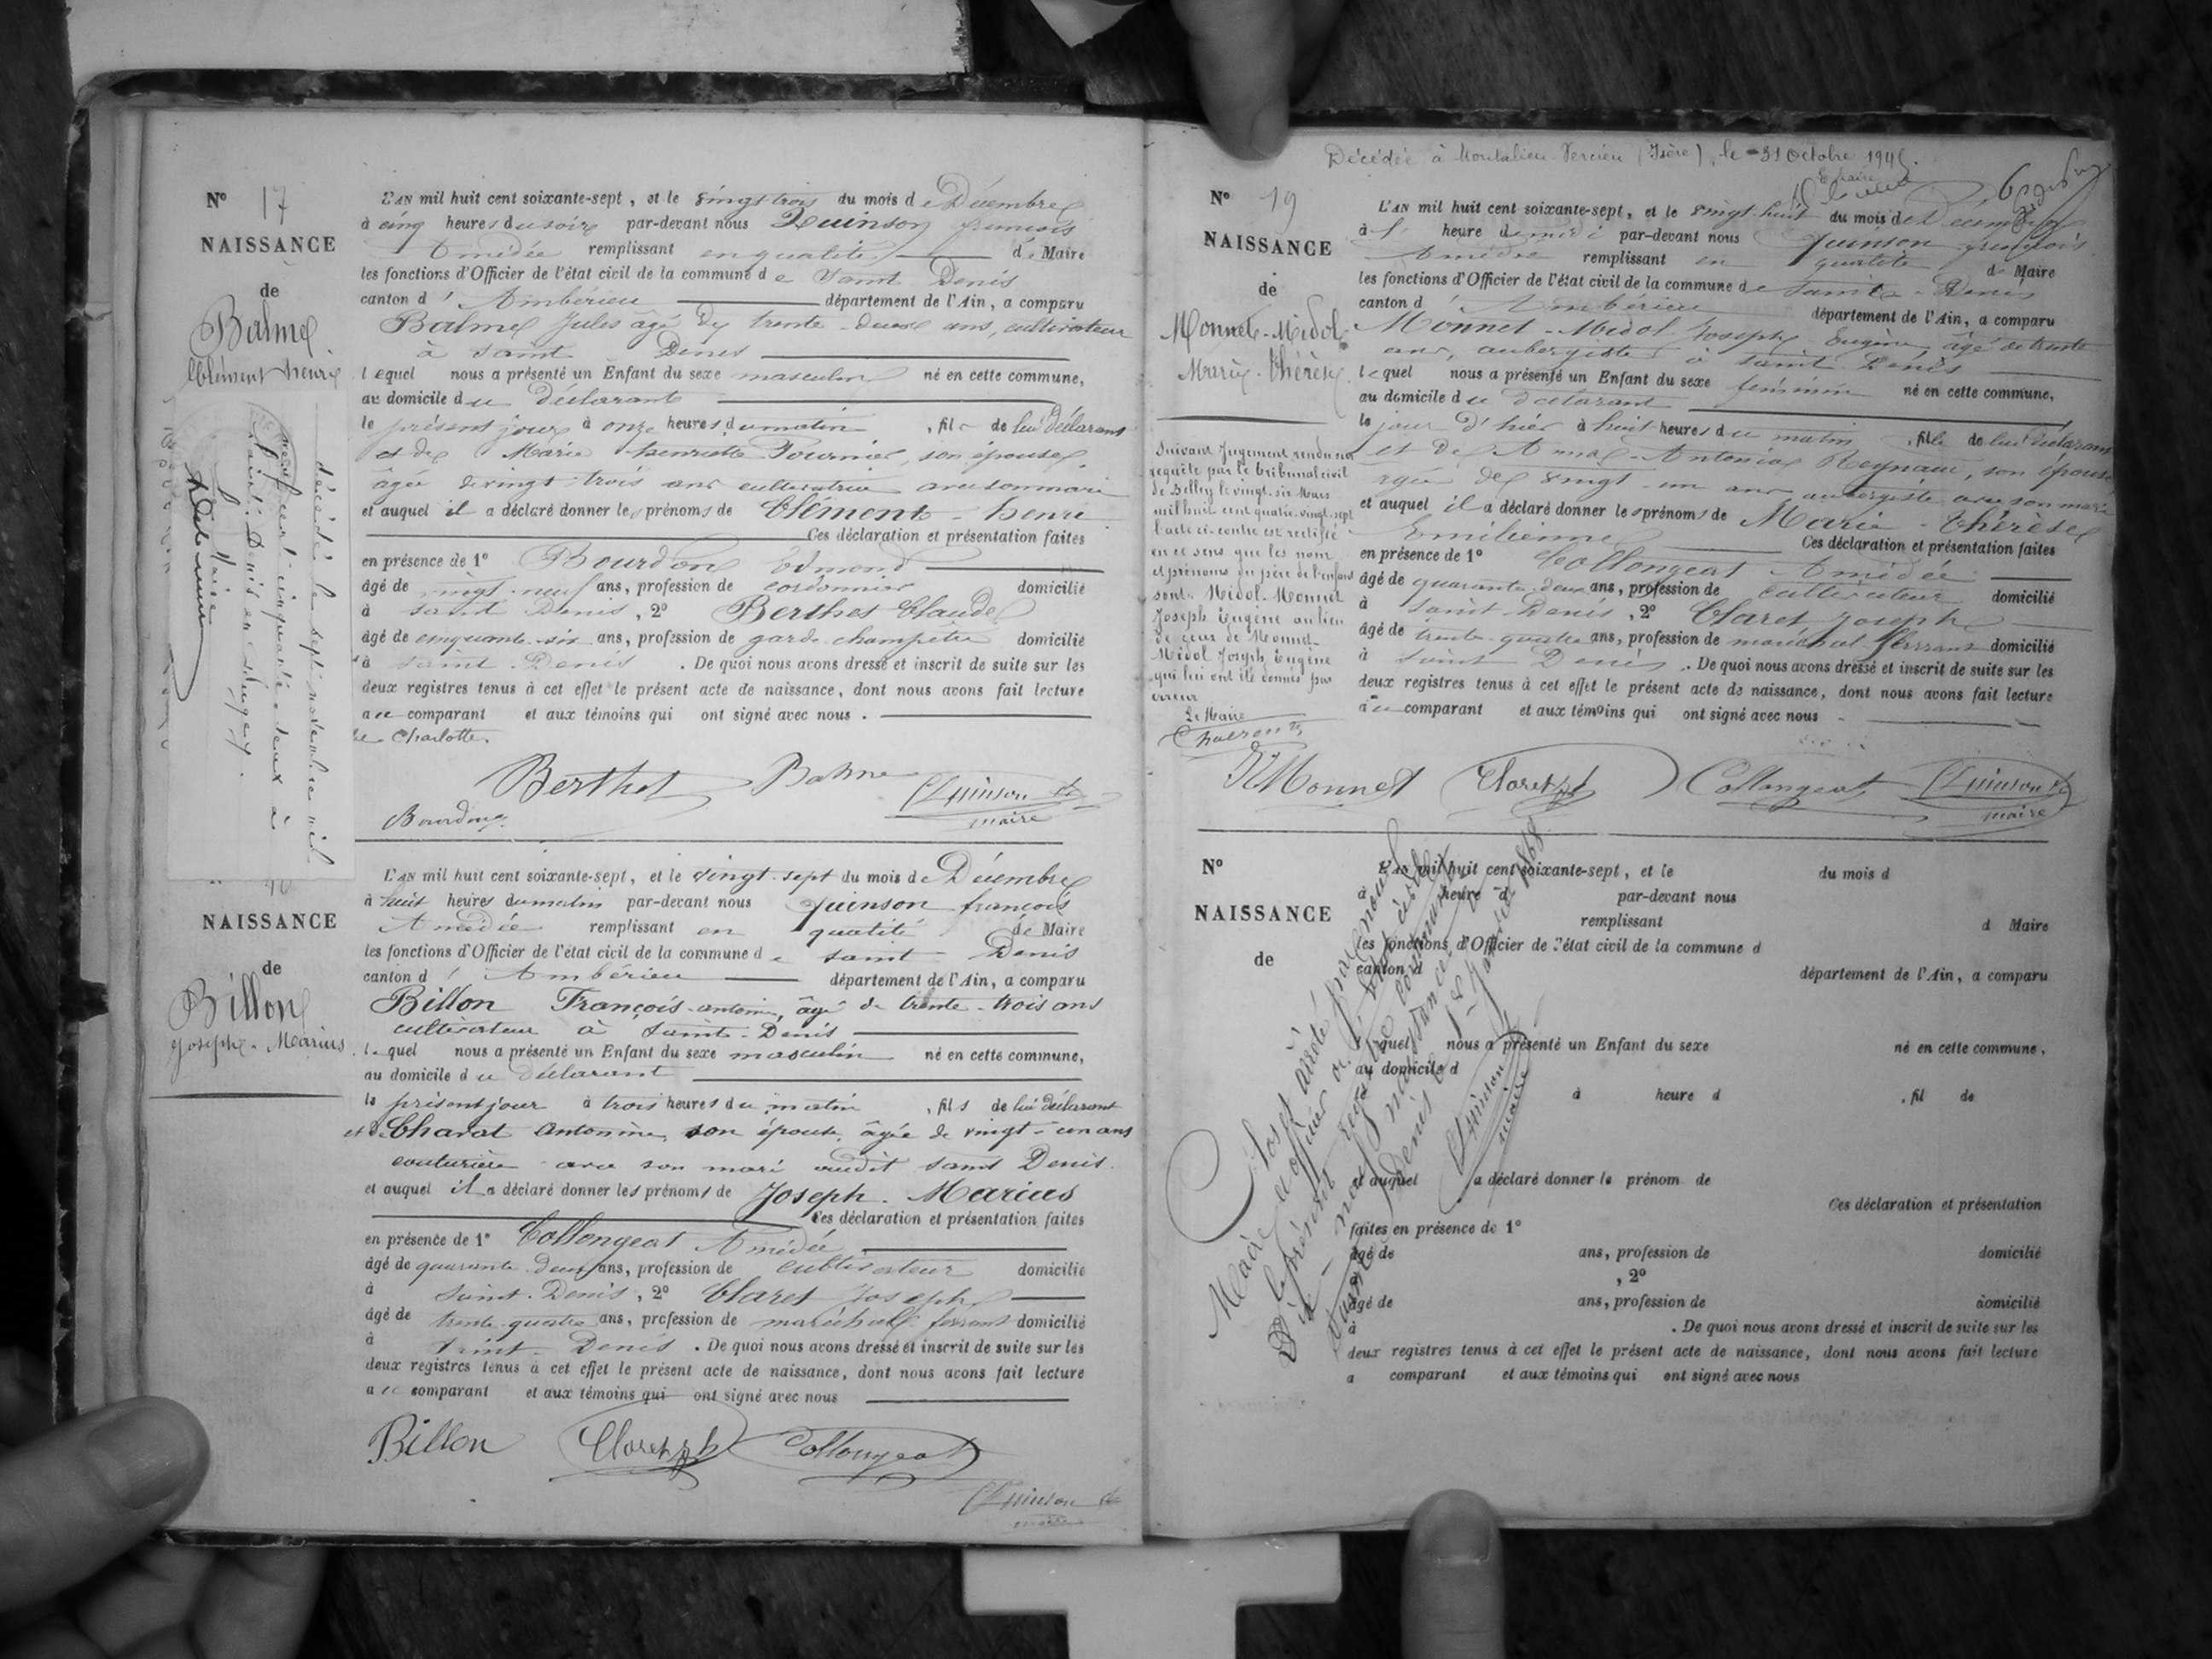 N° 17
NAISSANCE
de
Balme
Clément henri
L'AN mil huit cent soixante-sept, et le vingt trois du mois de Décembre
à cinq heures du soir par-devant nous Quinson françois
Amédée remplissant en qualité de Maire
les fonctions d'Officier de l'état civil de la commune de Saint Denis
canton d'Ambérieu département de l'Ain, a comparu
Balme Jules âgé de trente-deux ans, cultivateur
à saint Denis
lequel nous a présenté un Enfant du sexe masculin né en cette commune,
au domicile du déclarant
le présent jour à onze heures du matin, fils de lui déclarant
et de Marie henriette Fournier, son épouse,
âgée de vingt-trois ans cultivatrice avec son mari
et auquel il a déclaré donner les prénoms de Clément-henri
Ces déclaration et présentation faites
en présence de 1° Bourdon Edmond
âgé de vingt-neuf ans, profession de cordonnier domicilié
à saint Denis, 2° Berthet Claude
âgé de cinquante-six ans, profession de garde champêtre domicilié
à saint-Denis. De quoi nous avons dressé et inscrit de suite sur les
deux registres tenus à cet effet le présent acte de naissance, dont nous avons fait lecture
au comparant et aux témoins qui ont signé avec nous.
Charlotte.
Berthet Balme Quinson
maire
Bourdon
décédé le sept novembre mil
neuf cent cinquante deux à
Saint-Denis en Bugey.
Le Maire
NAISSANCE
de
Billon
Joseph-Marius
L'AN mil huit cent soixante-sept, et le vingt-sept du mois de Décembre
à huit heures du matin par-devant nous Quinson françois
Amédée remplissant en qualité de Maire
les fonctions d'Officier de l'état civil de la commune de saint-Denis
canton d'Ambérieu département de l'Ain, a comparu
Billon François-antoine, âgé de trente-trois ans
cultivateur à saint-Denis
lequel nous a présenté un Enfant du sexe masculin né en cette commune,
au domicile du déclarant
le présent jour à trois heures du matin, fils de lui déclarant
et de Charat Antonine, son épouse, âgée de vingt-un ans
couturière avec son mari audit saint Denis.
et auquel il a déclaré donner les prénoms de Joseph-Marius
Ces déclaration et présentation faites
en présence de 1° Collongeat Amédée
âgé de quarante-deux ans, profession de cultivateur domicilié
à saint-Denis, 2° Claret Joseph
âgé de trente-quatre ans, profession de maréchal ferrant domicilié
à saint-Denis. De quoi nous avons dressé et inscrit de suite sur les
deux registres tenus à cet effet le présent acte de naissance, dont nous avons fait lecture
au comparant et aux témoins qui ont signé avec nous
Billon Claret Collongeat
Quinson
maire
Décédée à Montalieu-Vercieu (Isère), le 31 Octobre
N° 19
NAISSANCE
de
Monnet-Midol
Marie-thérèse
L'AN mil huit cent soixante-sept, et le vingt huit du mois de Décembre
à heure de midi par-devant nous Quinson françois
Amédée remplissant en qualité de Maire
les fonctions d'Officier de l'état civil de la commune de saint-Denis
canton d'Ambérieu département de l'Ain, a comparu
Monnet-Midol Joseph Eugène âgé de trente
ans, aubergiste à saint Denis
lequel nous a présenté un Enfant du sexe féminin né en cette commune,
au domicile du déclarant
le jour d'hier à huit heures du matin, fille de lui déclarant
et de Anna-Antonia Reynaud, son épouse
âgée de vingt-un ans aubergiste avec son mari
et auquel il a déclaré donner les prénoms de Marie-thérèse
Emilienne Ces déclaration et présentation faites
en présence de 1° Collongeat Amédée
âgé de quarante-deux ans, profession de cultivateur domicilié
à saint Denis, 2° Claret Joseph
âgé de trente-quatre ans, profession de maréchal ferrant domicilié
à saint Denis. De quoi nous avons dressé et inscrit de suite sur les
deux registres tenus à cet effet le présent acte de naissance, dont nous avons fait lecture
au comparant et aux témoins qui ont signé avec nous
Suivant Jugement rendu sur
requête par le tribunal civil
de Belley le vingt-six Mars
mil huit cent quatre-vingt-sept
l'acte ci-contre est rectifié
en ce sens que les nom
et prénoms du père de l'enfant
sont Midol-Monnet
Joseph Eugène au lieu
de ceux de Monnet-
Midol Joseph Eugène
qui lui ont été donnés par
erreur
Le Maire
Monnet Claret Collongeat Quinson
maire
N°
NAISSANCE
de
L'AN mil huit cent soixante-sept, et le du mois d
à heure d par-devant nous
remplissant d Maire
les fonctions d'Officier de l'état civil de la commune d
canton d département de l'Ain, a comparu
lequel nous a présenté un Enfant du sexe né en cette commune,
au domicile d
à heure d, fil de
et auquel a déclaré donner le prénom de
Ces déclaration et présentation
faites en présence de 1°
âgé de ans, profession de domicilié
, 2°
âgé de ans, profession de domicilié
à. De quoi nous avons dressé et inscrit de suite sur les
deux registres tenus à cet effet le présent acte de naissance, dont nous avons fait lecture
a comparant et aux témoins qui ont signé avec nous
Clos et arrêté par nous
Maire officier de l'état civil
le présent registre
naissances
Denis le 1er Janvier 1868
Quinson
maire